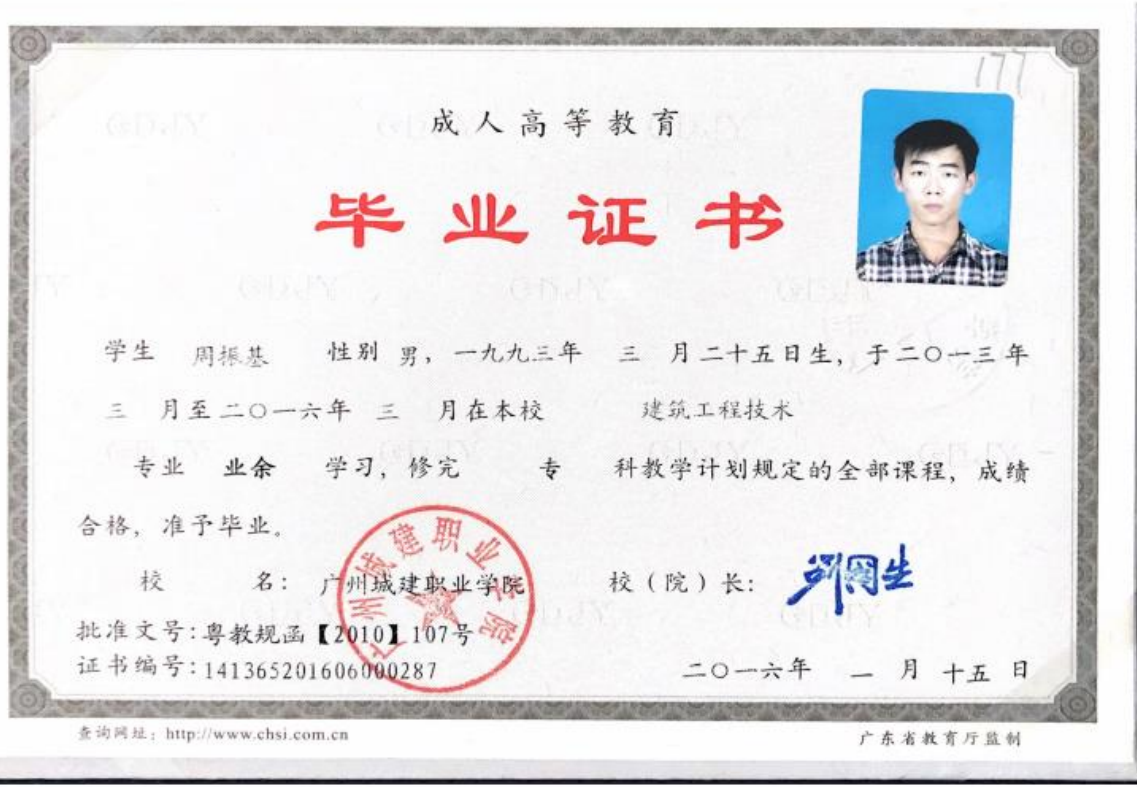 177
成人高等教育
毕业证书
学生 周振基 性别 男，一九九三年 三 月二十五日生，于二〇一三年
三 月至二〇一六年 三 月在本校 建筑工程技术
专业 业余 学习，修完 专 科教学计划规定的全部课程，成绩
合格，准予毕业。
校 名：广州城建职业学院 校（院）长：
广州城建职业学院
批准文号：粤教规函【2010】107号
证书编号：141365201606000287
二〇一六年 一 月 十五 日
查询网址：http://www.chsi.com.cn
广东省教育厅监制